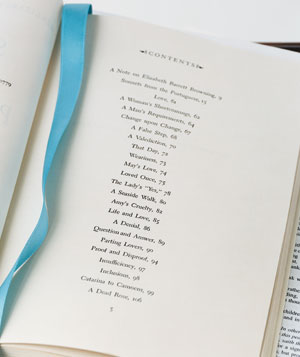 CONTENTS
A Note on Elizabeth Barrett Browning, 9
Sonnets from the Portuguese, 15
Love, 61
A Woman's Shortcomings, 62
A Man's Requirements, 64
Change upon Change, 67
A False Step, 68
A Valediction, 70
That Day, 72
Weariness, 73
May's Love, 74
Loved Once, 75
The Lady's "Yes," 78
A Seaside Walk, 80
Amy's Cruelty, 82
Life and Love, 85
A Denial, 86
Question and Answer, 89
Parting Lovers, 90
Proof and Disproof, 94
Insufficiency, 97
Inclusions, 98
Catarina to Camoens, 99
A Dead Rose, 106
5